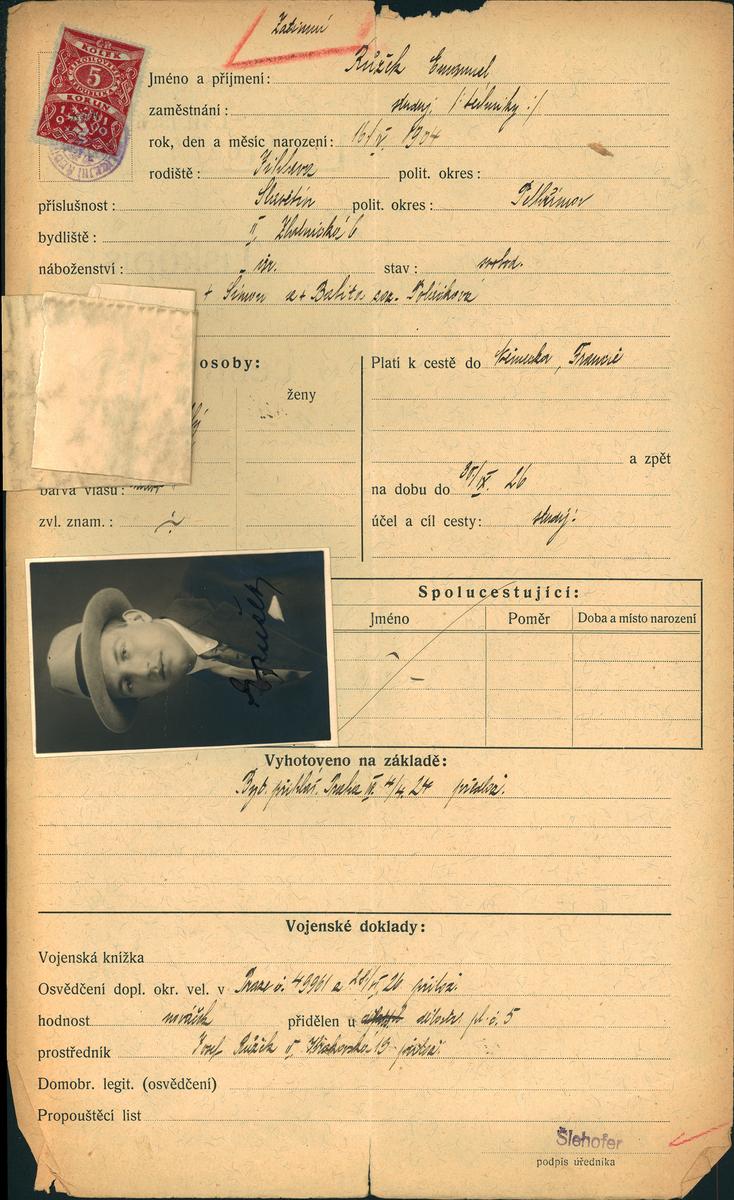 Zatímní
KOLEK
5
KORUN
Jméno a příjmení: Růžek Emanuel
zaměstnání: studuj. /:techniky:/
rok, den a měsíc narození: 16/V. 1904
rodiště: Jihlava polit. okres:
příslušnost: Slavětín polit. okres: Pelhřimov
bydliště: II,
náboženství: izr. stav: svobod.
+ Šimon a + Babita roz.
osoby:
ženy
barva vlasů:
zvl. znam.: ÷
Platí k cestě do Německa, Francie
a zpět
na dobu do 30/IX. 26
účel a cíl cesty: studij:
Růžek
Spolucestující:
Jméno Poměr Doba a místo narození
Vyhotoveno na základě:
Byt. přihláš. Praha 4/4. 24
Vojenské doklady:
Vojenská knížka
Osvědčení dopl. okr. vel. v Praze č. 49961 a
hodnost nováček přidělen u dělostř. pl. č. 5
prostředník Josef Růžek 13
Domobr. legit. (osvědčení)
Propouštěcí list
Šlehofer
podpis úředníka